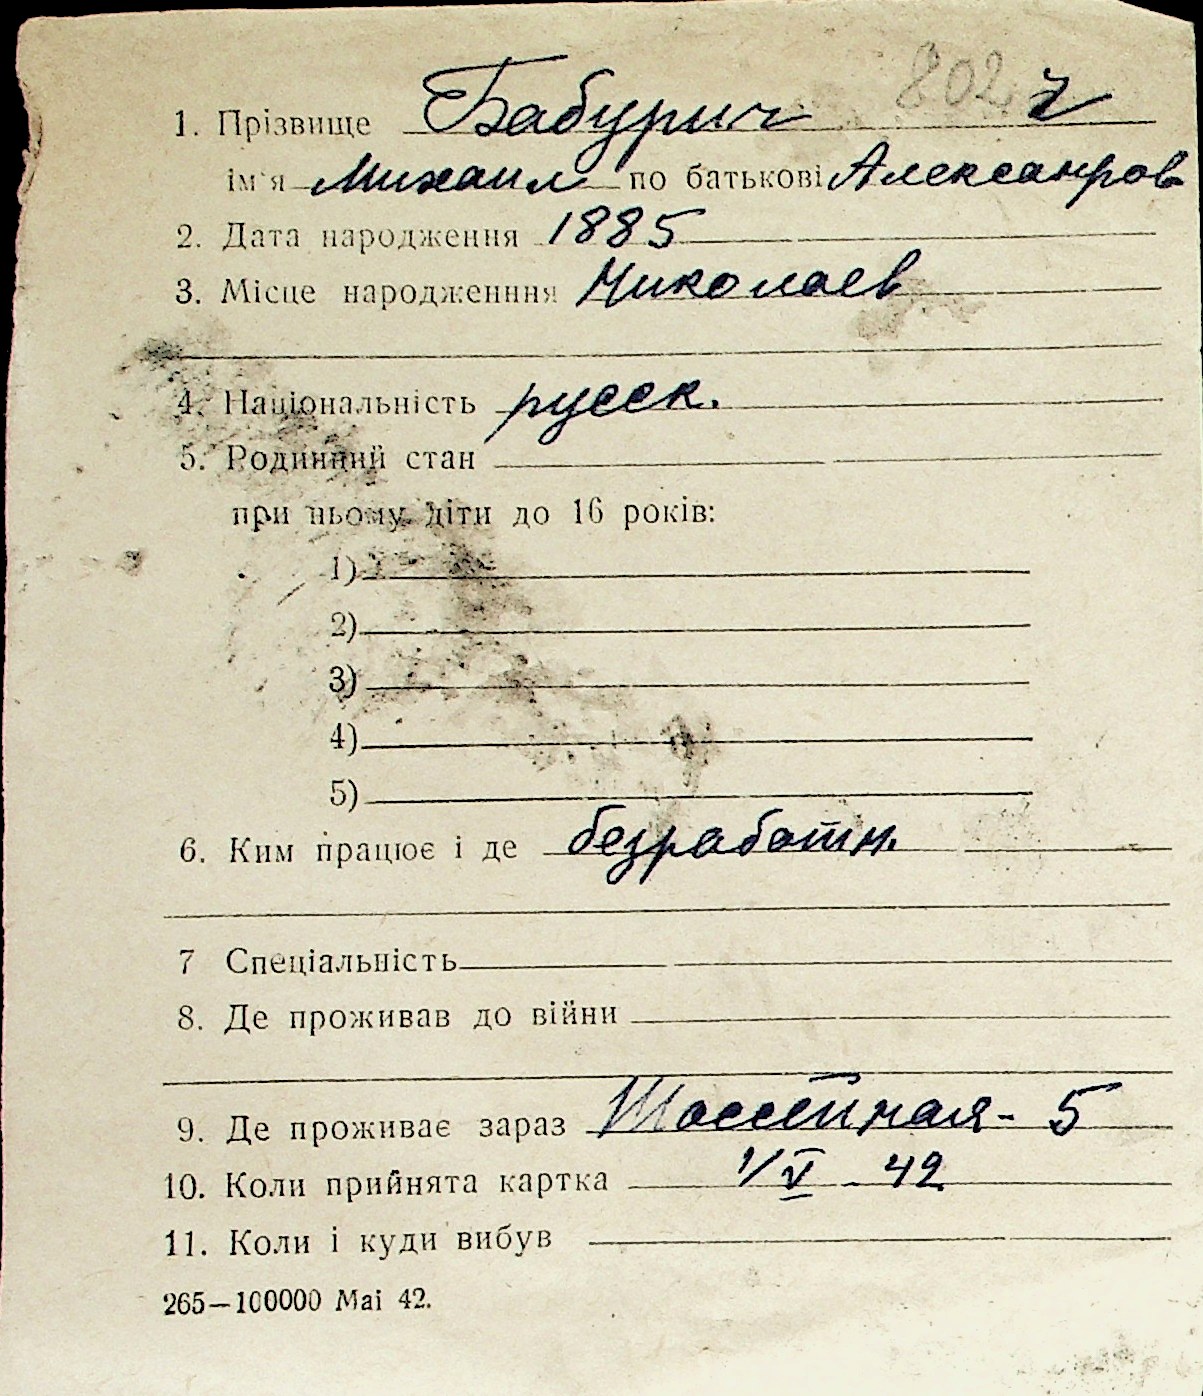 802 г
1. Прізвище Бабурич
ім'я Михаил по батькові Александров
2. Дата народження 1885
3. Місце народженння Николаев
4. Національність русск.
5. Родинний стан
при ньому діти до 16 років:
1)
2)
3)
4)
5)
6. Ким працює і де безработн.
7 Спеціальність
8. Де проживав до війни
9. Де проживає зараз Шоссейная - 5
10. Коли прийнята картка 1/V - 42
11. Коли і куди вибув
265—100000 Mai 42.